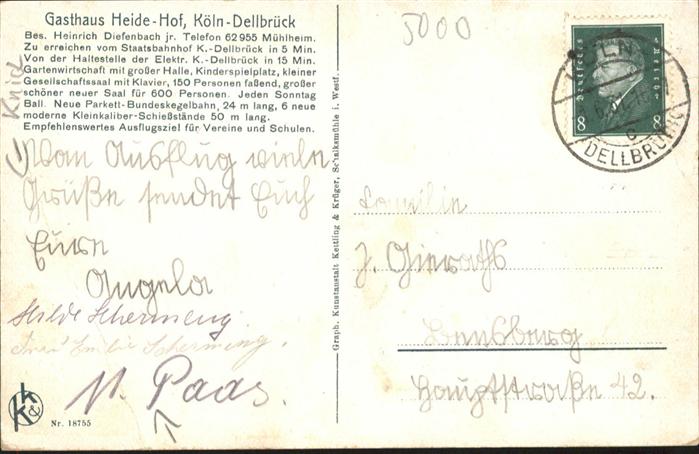 Gasthaus Heide-Hof, Köln-Dellbrück
Bes. Heinrich Diefenbach jr. Telefon 62955 Mühlheim.
Zu erreichen vom Staatsbahnhof K.-Dellbrück in 5 Min.
Von der Haltestelle der Elektr. K.-Dellbrück in 15 Min.
Gartenwirtschaft mit großer Halle, Kinderspielplatz, kleiner
Gesellschaftssaal mit Klavier, 150 Personen faßend, großer
schöner neuer Saal für 600 Personen. Jeden Sonntag
Ball. Neue Parkett-Bundeskegelbahn, 24 m lang, 6 neue
moderne Kleinkaliber-Schießstände 50 m lang.
Empfehlenswertes Ausflugsziel für Vereine und Schulen.
Knick
Vom Ausflug viele
Grüße sendet Euch
Eure
Angela
Hilde Schermeng.
Schermeng.
M. Paas.
k
K&
Nr. 18755
Graph. Kunstanstalt Kettling & Krüger, Schalksmühle i. Westf.
5000
Deutsches Reich
8 8
KÖLN
DELLBRÜCK
c
Familie
J. Gieraths
Bensberg
Hauptstraße 42.